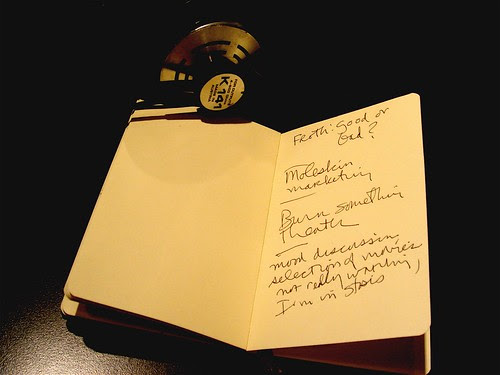 K 141
Froth: Good or
bad?
Moleskin
marketing
Burn something
Theatre
most discussion,
selection of movies
not really working,
I'm in